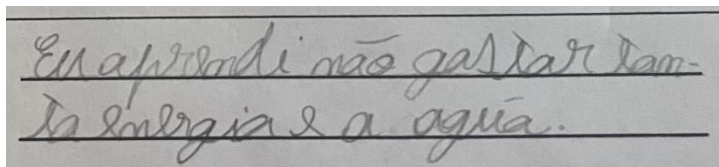 Eu aprendi não gastar tan-
ta energia e a aguá.